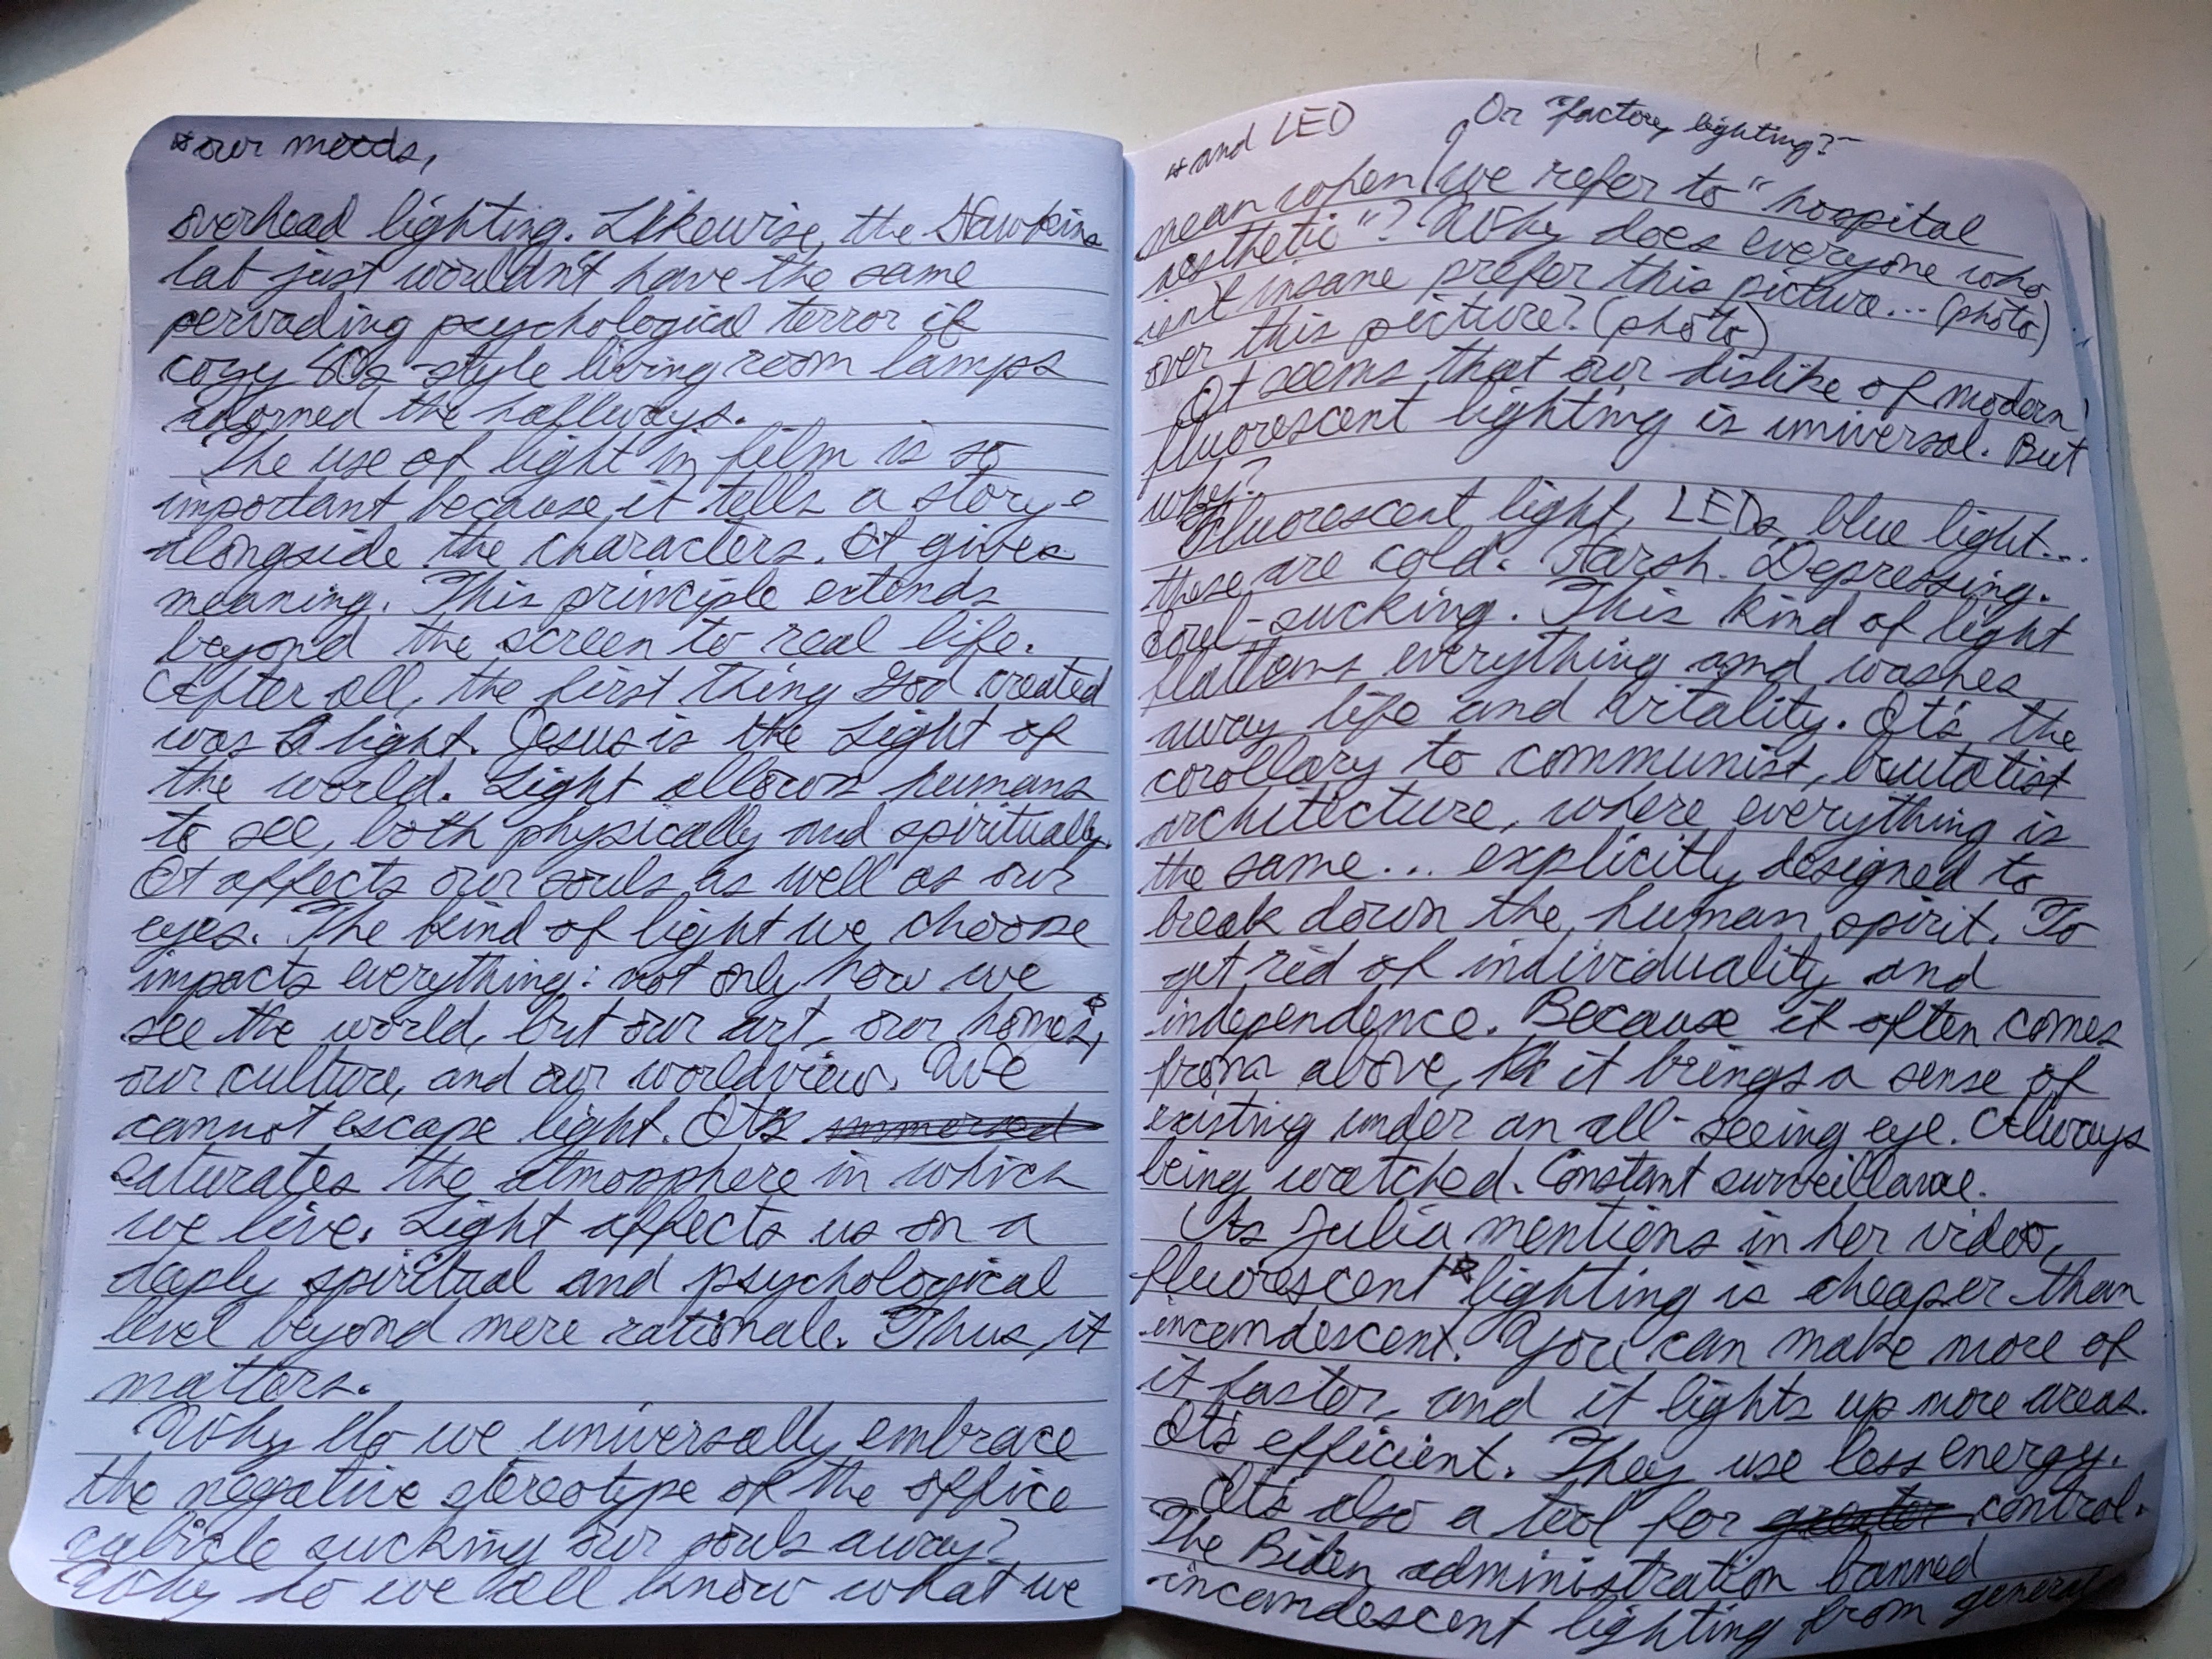 *our moods,
overhead lighting. Likewise, the Hawkins
lab just wouldn't have the same
pervading psychological terror if
cozy 80s-style living room lamps
adorned the hallways.
The use of light in film is so
important because it tells a story
alongside the characters. It gives
meaning. This principle extends
beyond the screen to real life.
After all, the first thing God created
was light. Jesus is the Light of
the world. Light allows humans
to see, both physically and spiritually.
It affects our souls as well as our
eyes. The kind of light we choose
impacts everything: not only how we
see the world, but our art, our homes,*
our culture, and our worldview. We
cannot escape light. It immersed
saturates the atmosphere in which
we live. Light affects us on a
deeply spiritual and psychological
level beyond mere rationale. Thus, it
matters.
Why do we universally embrace
the negative stereotype of the office
cubicle sucking our souls away?
Why do we all know what we
*and LED
Or "factory lighting?"
mean when we refer to "hospital
aesthetic"? Why does everyone who
isn't insane prefer this picture... (photo)
over this picture? (photo)
It seems that our dislike of modern
fluorescent lighting is universal. But
why?
Fluorescent light, LEDs, blue light...
these are cold. Harsh. Depressing.
Soul-sucking. This kind of light
flattens everything and washes
away life and vitality. It's the
corollary to communist, brutalist
architecture, where everything is
the same... explicitly designed to
break down the human spirit. To
get rid of individuality and
independence. Because it often comes
from above, it brings a sense of
existing under an all-seeing eye. Always
being watched. Constant surveillance.
As Julia mentions in her video,
fluorescent* lighting is cheaper than
incandescent. You can make more of
it faster, and it lights up more areas.
It's efficient. They use less energy.
It's also a tool for greater control.
The Biden administration banned
incandescent lighting from general